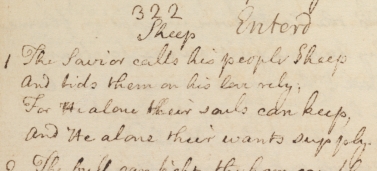 322
Sheep Enterd
1 The Savior calls his people Sheep
And bids them on his love rely;
For He alone their souls can keep,
And He alone their wants supply.
2 The bull can